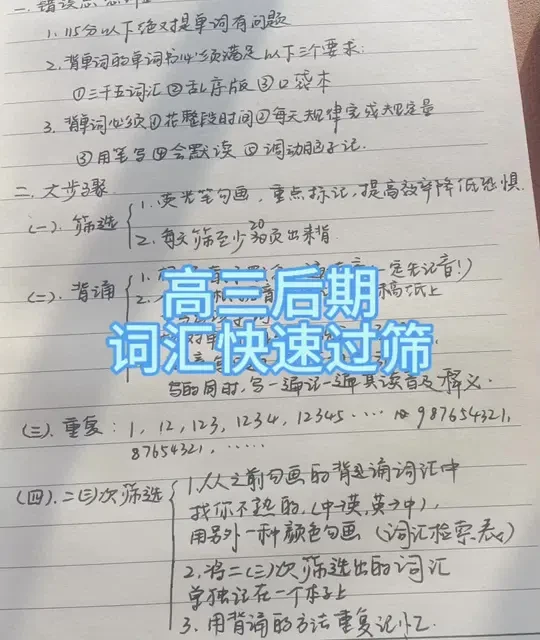 1. 115分以下绝对是单词有问题
2. 背单词的单词书必须满足以下三个要求:
①三千五词汇 ②乱序版 ③口袋本
3. 背单词必须①花整段时间②每天规律完成规定量
③用笔写④会默读⑤调动脑子记.
二. 大步骤
(一). 筛选
1. 荧光笔勾画, 重点标记, 提高效率降低恐惧.
2. 每天筛至少20页出来背
(二). 背诵
一定先记音!)
稿纸上
高三后期
词汇快速过筛
写的同时, 写一遍记一遍其读音及释义.
(三). 重复: 1, 12, 123, 1234, 12345 ····· 987654321,
87654321, ······
(四). 二(三)次筛选
1. 从之前勾画的背诵词汇中
找你不熟的, (中→英, 英→中),
用另外一种颜色勾画 (词汇检索表)
2. 将二(三)次筛选出的词汇
单独记在一个本子上
3. 用背诵的方法重复记忆.